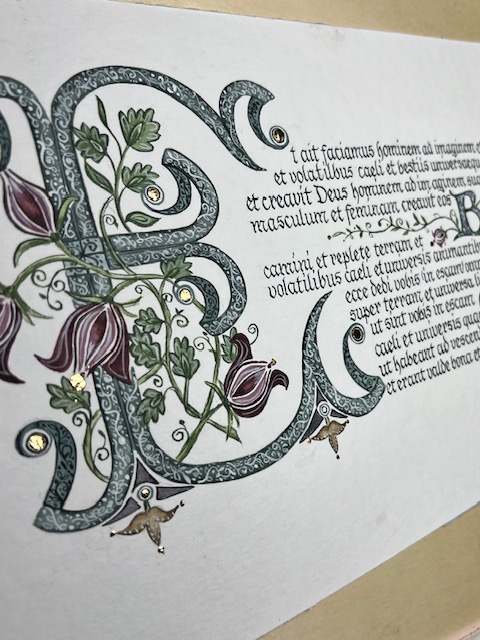 Et ait faciamus hominem ad imaginem e
et volatilibus caeli et bestiis universaequ
et creavit Deus hominem ad imaginem sua
masculum et feminam creavit eos B
et replete terram et
volatilibus caeli et universis animantib
ecce dedi vobis in escam omn
super terram et universa l
ut sint vobis in escam
caeli et universis qua
ut habeant ad vescen
et erant valde bona et